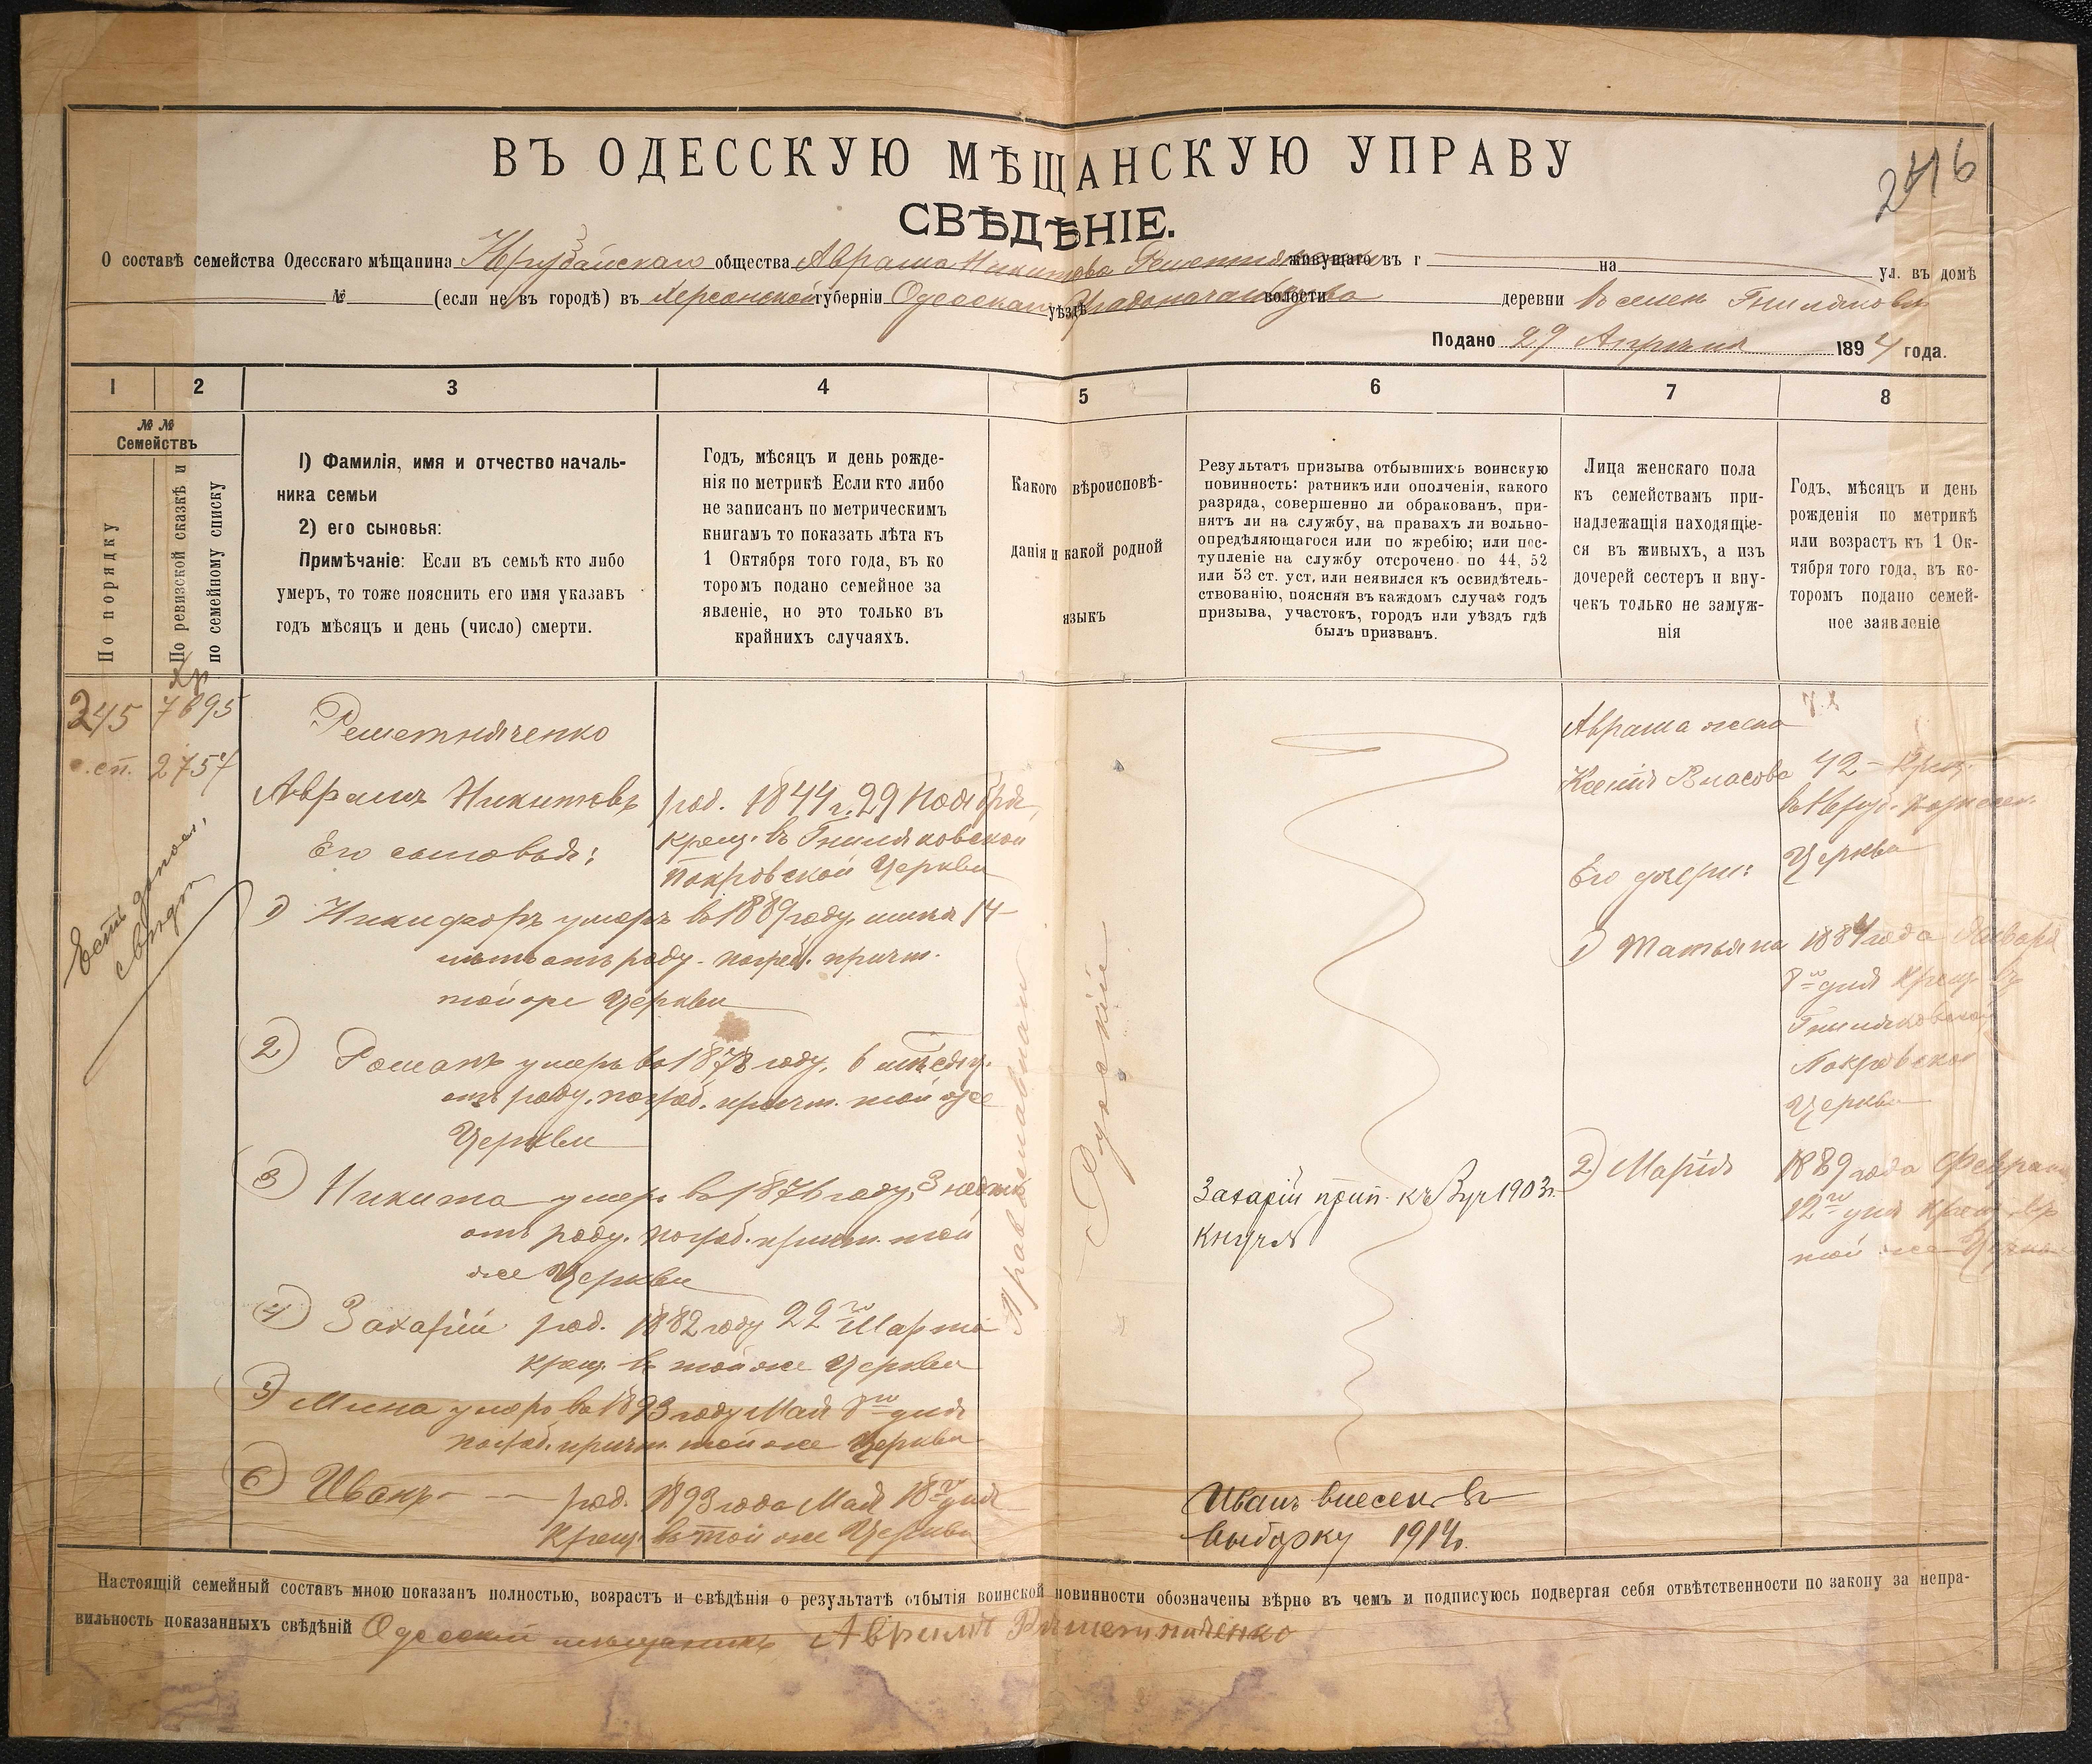 2416
ВЪ ОДЕССКУЮ МѢЩАНСКУЮ УПРАВУ
СВѢДѢНІЕ.
О составѣ семейства Одесскаго мѣщанина общества Аврама Никитова живущаго въ г на ул. въ домѣ
№ (если не въ городѣ) въ Херсонской губерніи Одесскаго уѣздѣ Градоначальства волости деревни въ селен Гниляково
Подано 29 Апрѣля 1894 года.
1 2 3 4 5 6 7 8
№ №
Семействъ
По порядку
По ревизской сказкѣ и
по семейному списку
1) Фамилія, имя и отчество началь-
ника семьи
2) его сыновья:
Примѣчаніе: Если въ семьѣ кто либо
умеръ, то тоже пояснить его имя указавъ
годъ мѣсяцъ и день (число) смерти.
Годъ, мѣсяцъ и день рожде-
нія по метрикѣ Если кто либо
не записанъ по метрическимъ
книгамъ то показать лѣта къ
1 Октября того года, въ ко
торомъ подано семейное за
явленіе, но это только въ
крайнихъ случаяхъ.
Какого вѣроисповѣ-
данія и какой родной
языкъ
Результатъ призыва отбывшихъ воинскую
повинность: ратникъ или ополченія, какого
разряда, совершенно ли обракованъ, при-
нятъ ли на службу, на правахъ ли вольно-
опредѣляющагося или по жребію; или пос-
тупленіе на службу отсрочено по 44, 52
или 53 ст. уст. или неявился къ освидѣтель-
ствованію, поясняя въ каждомъ случаѣ годъ
призыва, участокъ, городъ или уѣздъ гдѣ
былъ призванъ.
Лица женскаго пола
къ семействамъ при-
надлежащія находящіе-
ся въ живыхъ, а изъ
дочерей сестеръ и вну-
чекъ только не замуж-
нія
Годъ, мѣсяцъ и день
рожденія по метрикѣ
или возрастъ къ 1 Ок-
тября того года, въ ко-
торомъ подано семей-
ное заявленіе
245 7695
с.сп. 2757
Есть
Решетняченко
Аврамъ Никитовъ род. 1844 г. 29 Ноября,
крещ. въ Гниляковской
Покровской Церкви
Его сыновья:
1) Никифоръ умеръ въ 1889 году, 14
лѣтъ отъ роду. погреб. причт.
той же Церкви
2) Романъ умеръ во 1878 году, 6 мѣсяц.
отъ роду. погреб. причт. той же
Церкви
3) Никита умеръ во 1876 году, 3
отъ роду. погреб. причт. той
же Церкви
4) Захарій род. 1882 году 22го Марта
крещ. въ той же Церкви
5) Мина умеръ во 1893 году Мая 8го дня
погреб. причт. той же Церкви
6) Иванъ род. 1893 года Мая 18го дня
крещ. въ той же Церкви
Православнаго
Русскій
Захарій прип. къ 1903 г.
Иванъ внесен въ
выборку 1914 г.
Аврама жена
Ксенія Власова 42
Церкви
Его дочери:
1) Татьяна 1884 года Января
8го дня крещ. въ
Гниляковской
Покровской
Церкви
2) Марія 1889 года Февраля
12го дня крещ. въ
той же Церкви
Настоящій семейный составъ мною показанъ полностью, возрастъ и свѣдѣнія о результатѣ отбытія воинской повинности обозначены вѣрно въ чемъ и подписуюсь подвергая себя отвѣтственности по закону за непра-
вильность показанныхъ свѣдѣній Одесскій мѣщанинъ Аврамъ Решетняченко